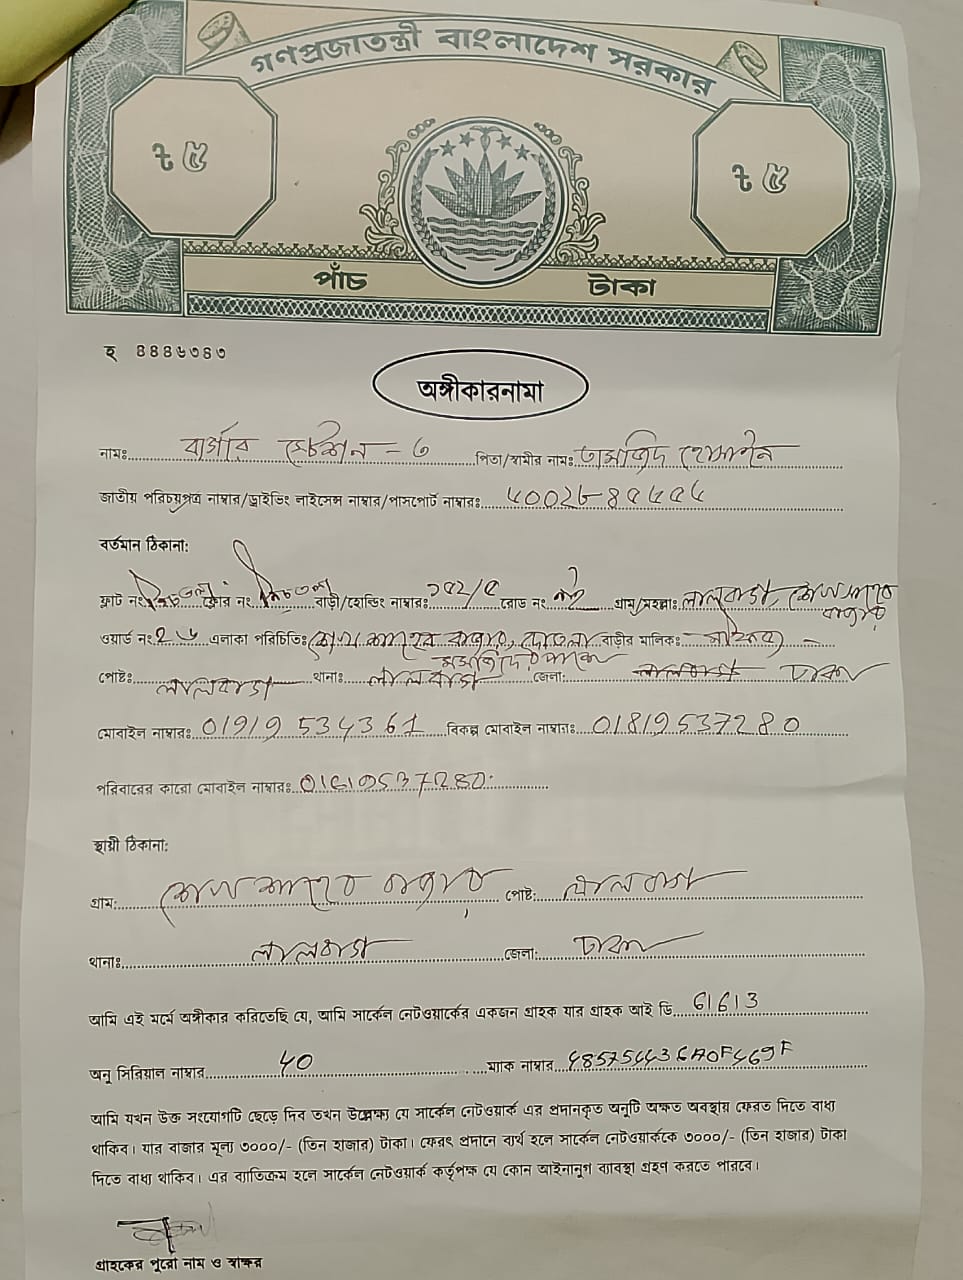 গণপ্রজাতন্ত্রী বাংলাদেশ সরকার
৳ ৫ ৳ ৫
পাঁচ টাকা
হ ৪৪৪৬৩৪৩
অঙ্গীকারনামা
নামঃ বার্গার স্টেশন - ৩ পিতা/স্বামীর নামঃ
জাতীয় পরিচয়পত্র নাম্বার/ড্রাইভিং লাইসেন্স নাম্বার/পাসপোর্ট নাম্বারঃ
বর্তমান ঠিকানা:
ফ্লাট নং নিচতলা ফ্লোর নং নিচতলা বাড়ী/হোল্ডিং নাম্বারঃ রোড নং নাই গ্রাম/মহল্লাঃ
ওয়ার্ড নংঃ এলাকা পরিচিতিঃ বাড়ীর মালিকঃ
পোষ্টঃ লালবাগ থানাঃ লালবাগ জেলা: ঢাকা
মোবাইল নাম্বারঃ 01919534361 বিকল্প মোবাইল নাম্বারঃ 01819537280
পরিবারের কারো মোবাইল নাম্বারঃ
স্থায়ী ঠিকানা:
গ্রাম: পোষ্ট: লালবাগ
থানাঃ লালবাগ জেলা: ঢাকা
আমি এই মর্মে অঙ্গীকার করিতেছি যে, আমি সার্কেল নেটওয়ার্কের একজন গ্রাহক যার গ্রাহক আই ডি 61613
অনু সিরিয়াল নাম্বার ৮০ ম্যাক নাম্বার
আমি যখন উক্ত সংযোগটি ছেড়ে দিব তখন উল্লেক্ষ্য যে সার্কেল নেটওয়ার্ক এর প্রদানকৃত অনুটি অক্ষত অবস্থায় ফেরত দিতে বাধ্য
থাকিব। যার বাজার মূল্য ৩০০০/- (তিন হাজার) টাকা। ফেরৎ প্রদানে ব্যর্থ হলে সার্কেল নেটওয়ার্ককে ৩০০০/- (তিন হাজার) টাকা
দিতে বাধ্য থাকিব। এর ব্যতিক্রম হলে সার্কেল নেটওয়ার্ক কর্তৃপক্ষ যে কোন আইনানুগ ব্যবস্থা গ্রহণ করতে পারবে।
গ্রাহকের পুরো নাম ও স্বাক্ষর